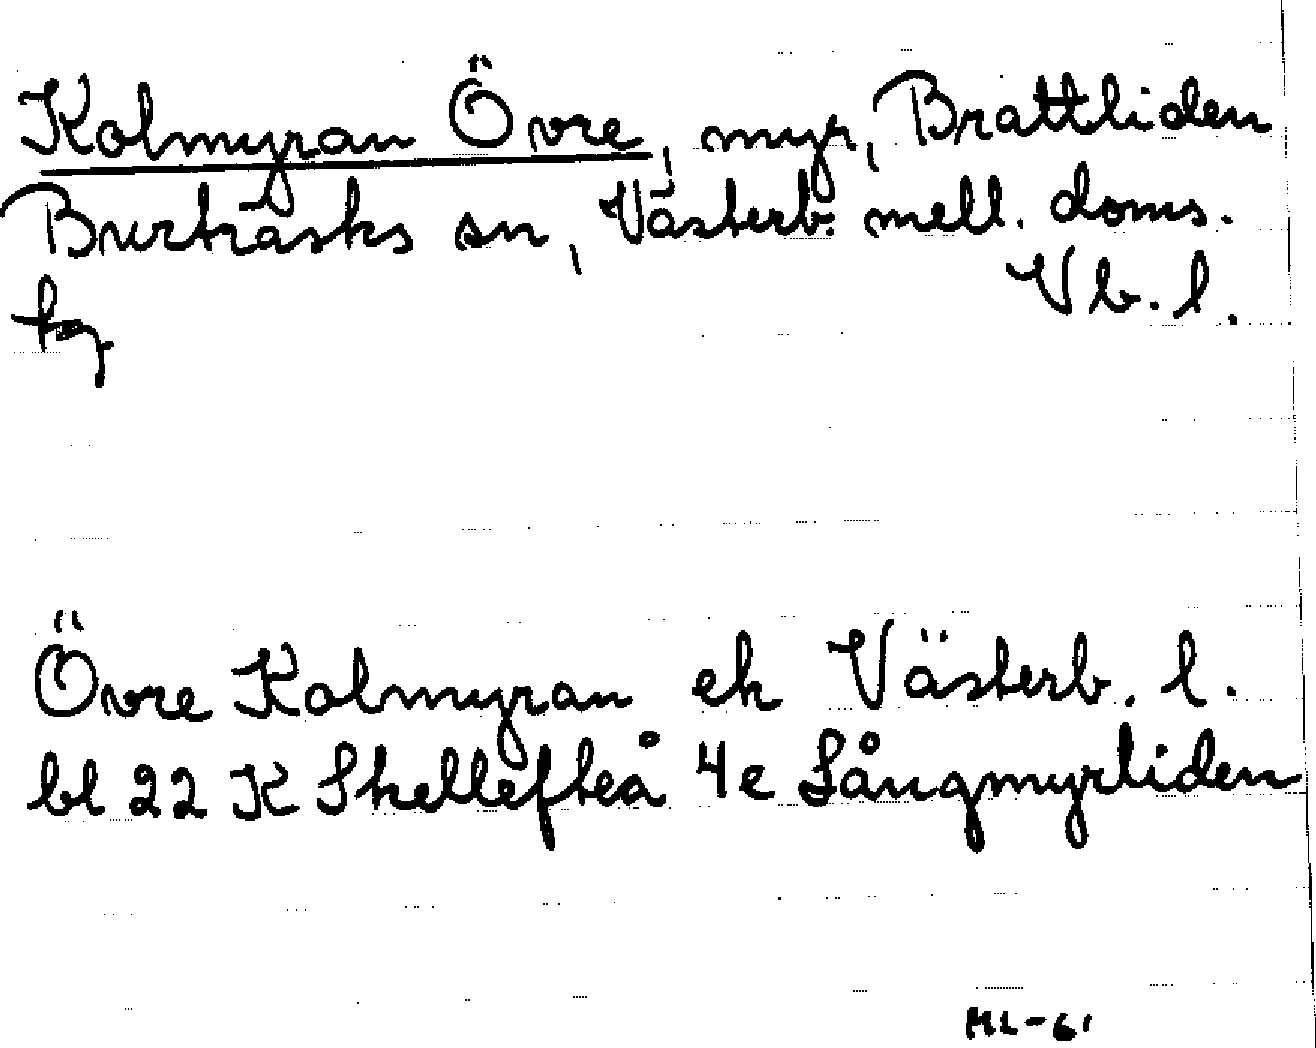 Kolmyran Övre, myr, Brattliden
Burträsks sn, Västerb. mell. doms.
tg Vb. l.
Övre Kolmyran ek Västerb. l.
bl 22 K Skellefteå 4e Långmyrliden
ML-61